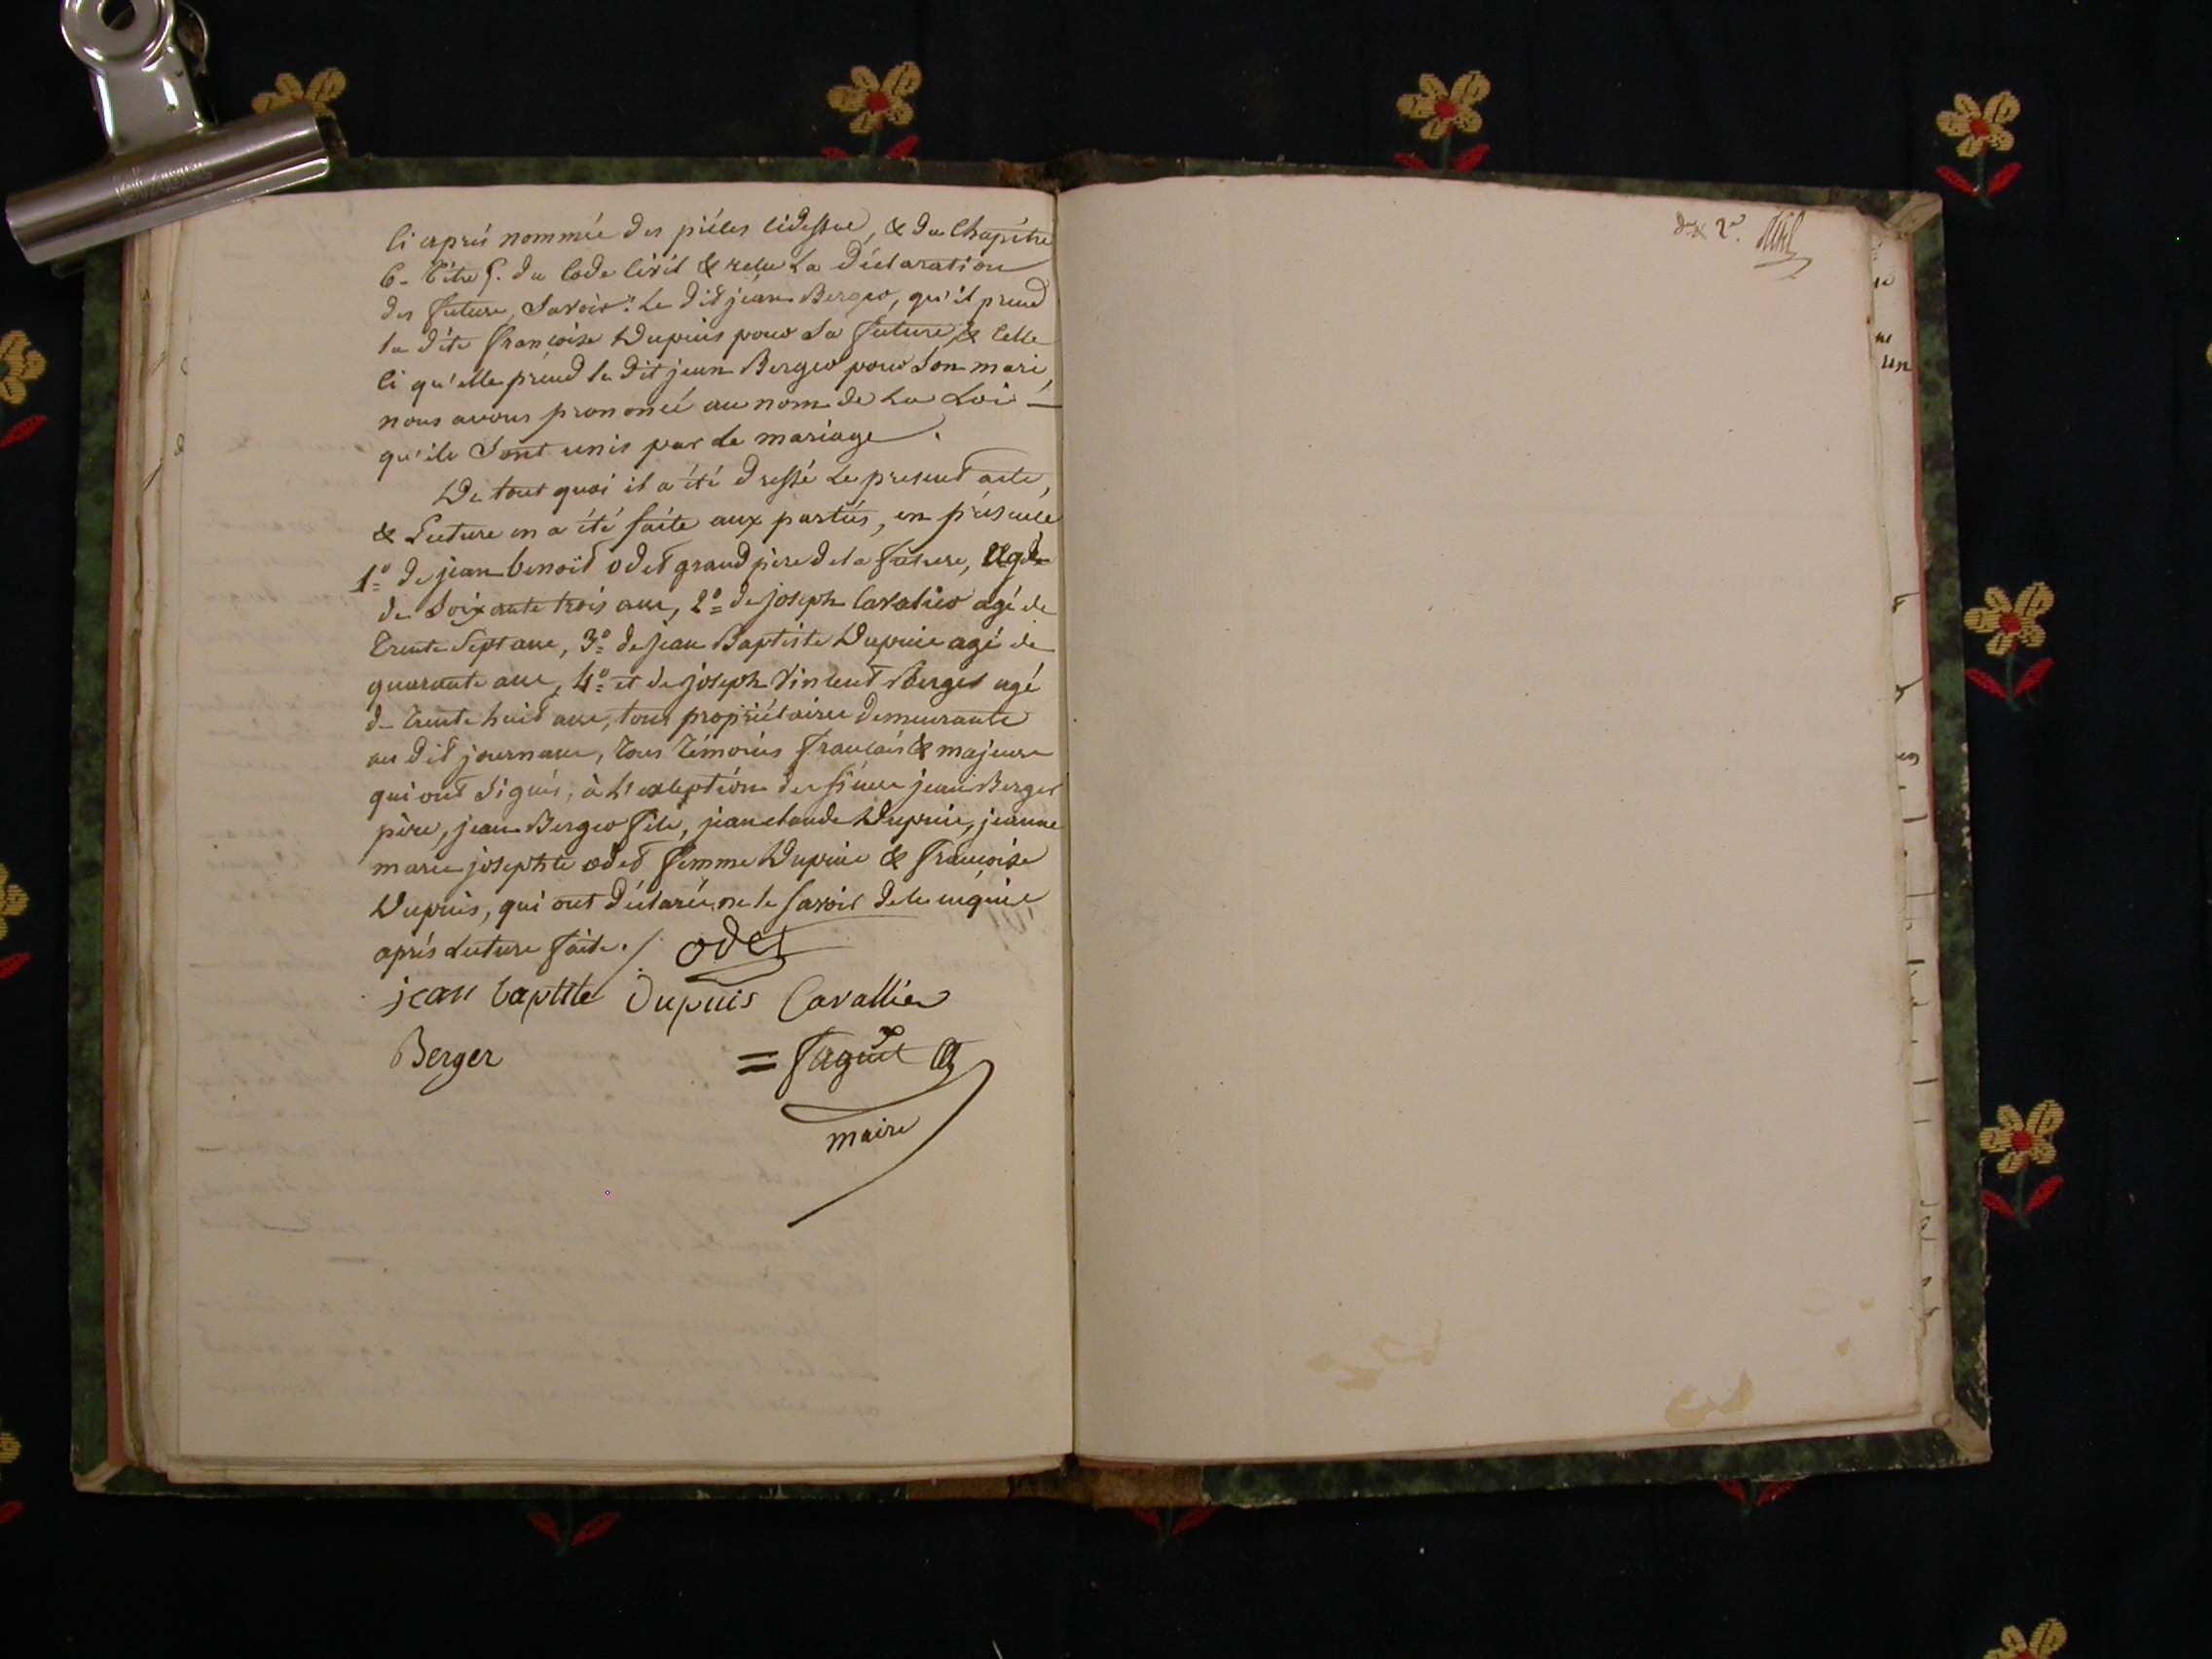 Ci après nommés des pièces cidessus, & du Chapitre
6. titre 5. du Code Civil & reçu la Déclaration
des future, Savoir: Le dit jean Berger, qu'il prend
la dite françoise Dupuis pour Sa future, & Celle
Ci qu'elle prend le dit jean Berger pour Son mari,
nous avons prononcé au nom de La Loi —
qu'ils Sont unis par Le mariage.
De tout quoi il a été dressé Le present acte,
& Lecture en a été faite aux parties, en présence
1º de jean benoit odet grand père de la future, agé
de Soixante trois ans, 2º de joseph Cavalier agé de
trente Sept ans, 3º de jean Baptiste Dupuis agé de
quarante ans, 4º et de joseph Vincent Berger agé
de trente huit ans, tous propriétaires demeurants
au dit journans, tous témoins français & majeurs
qui ont Signés, à L'exception des sieurs jean Berger
père, jean Berger fils, jean claude Dupuis, jeanne
marie josephte odet femme Dupuis & françoise
Dupuis, qui ont déclaré ne le savoir de ce réquis
après Lecture faite ./. odet
jean baptiste Dupuis Cavallier
Berger = faguet
maire